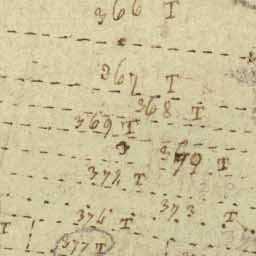 366 I
367 I
368 I
369 I
370 I
372 I
373 I
374 I
377 I